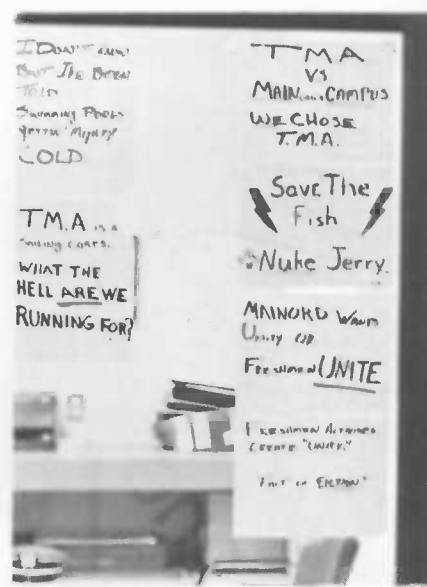 I DON'T KNOW
BUT I'VE BEEN
TOLD
SWIMMING POOLS
COLD
T.M.A IS A
SAILING CORPS.
WHAT THE
HELL ARE WE
RUNNING FOR?
TMA
VS
MAIN CAMPUS
WE CHOSE
T.M.A.
Save The
Fish
Nuke Jerry.
MAINORD WANTS
UNITY
FRESHMEN UNITE
FRESHMAN ACTIVITIES
CREATE "UNITY."
FACT OR FICTION?